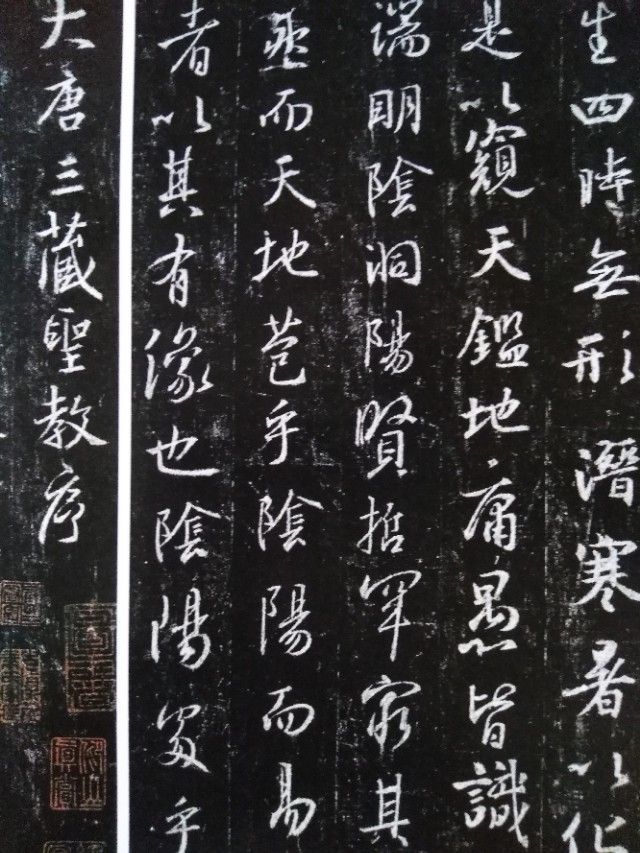 生四時無形潛寒暑以化
是以窺天鑑地庸愚皆識
端明陰洞陽賢哲罕窮其
然而天地苞乎陰陽而易
者以其有像也陰陽處乎
大唐三藏聖教序